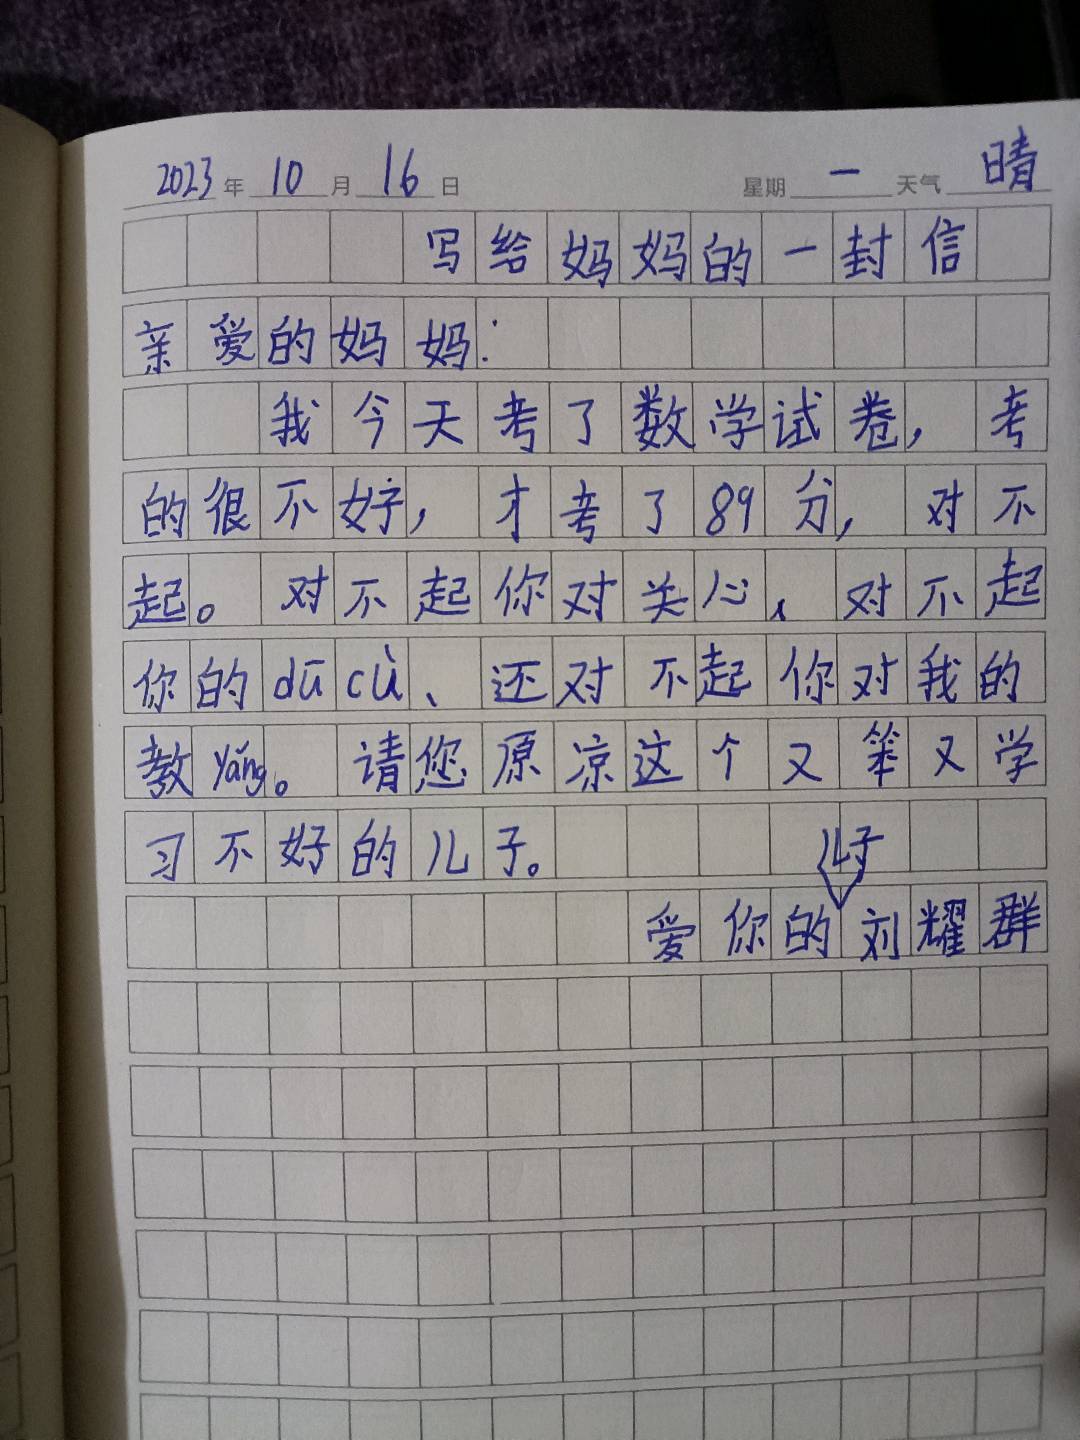 2023年10月16日 星期一 天气晴
写给妈妈的一封信
亲爱的妈妈:
我今天考了数学试卷，考
的很不好，才考了89分，对不
起。对不起你对关心、对不起
你的dū cù、还对不起你对我的
教yǎng。请您原凉这个又笨又学
习不好的儿子。
儿子
爱你的刘耀群